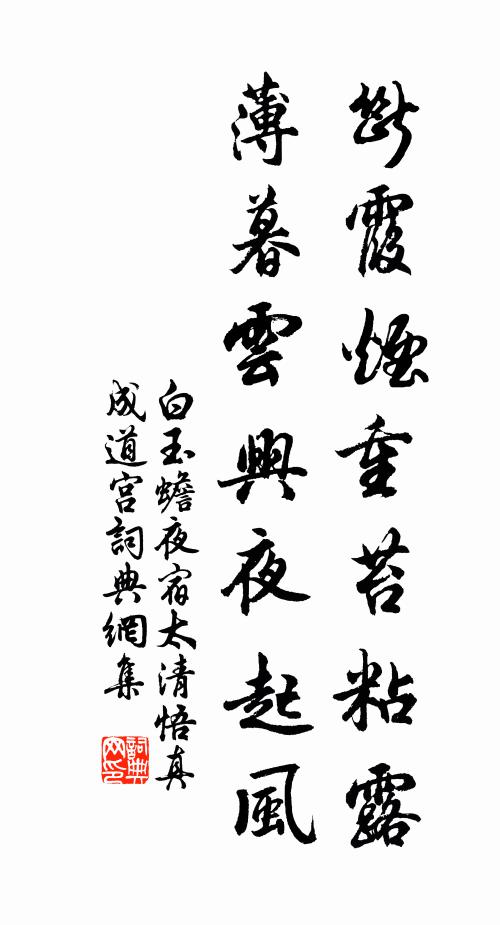 斷霞煙重苔粘露
薄暮雲興夜起風
白玉蟾夜宿太清悟真
成道宮詞典網集
詞典
網印